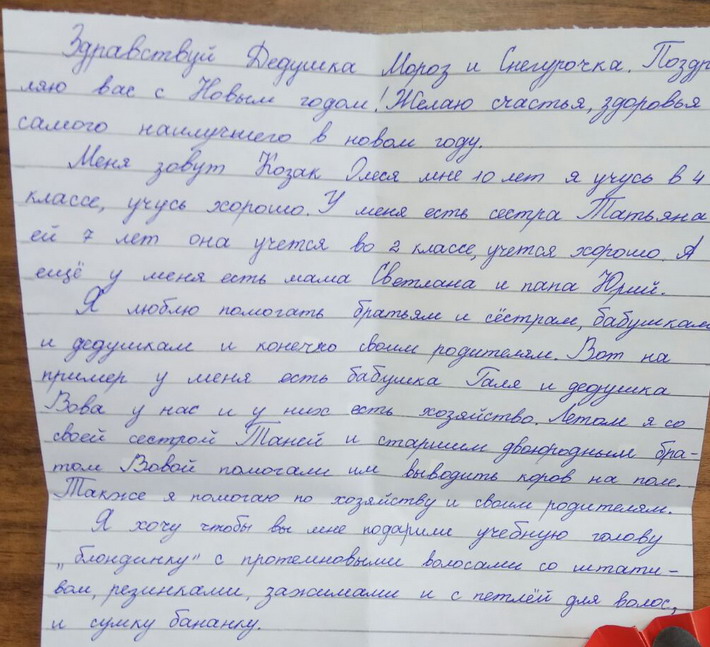 Здравствуй Дедушка Мороз и Снегурочка. Поздр
ляю вас с Новым годом! Желаю счастья, здоровья
самого наилучшего в новом году.
Меня зовут Козак Олеся мне 10 лет я учусь в 4
классе, учусь хорошо. У меня есть сестра Татьяна
ей 7 лет она учется во 2 классе, учется хорошо. А
ещё у меня есть мама Светлана и папа Юрий.
Я люблю помогать братьям и сёстрам, бабушкам
и дедушкам и конечно своим родителям. Вот на
пример у меня есть бабушка Галя и дедушка
Вова у нас и у них есть хозяйство. Летом я со
своей сестрой Таней и старшим двоюродным бра-
том Вовой помогали им выводить коров на поле.
Также я помогаю по хозяйству и своим родителям.
Я хочу чтобы вы мне подарили учебную голову
„блондинку" с протеиновыми волосами со штати-
вом, резинками, зажимами и с петлёй для волос,
и сумку бананку.